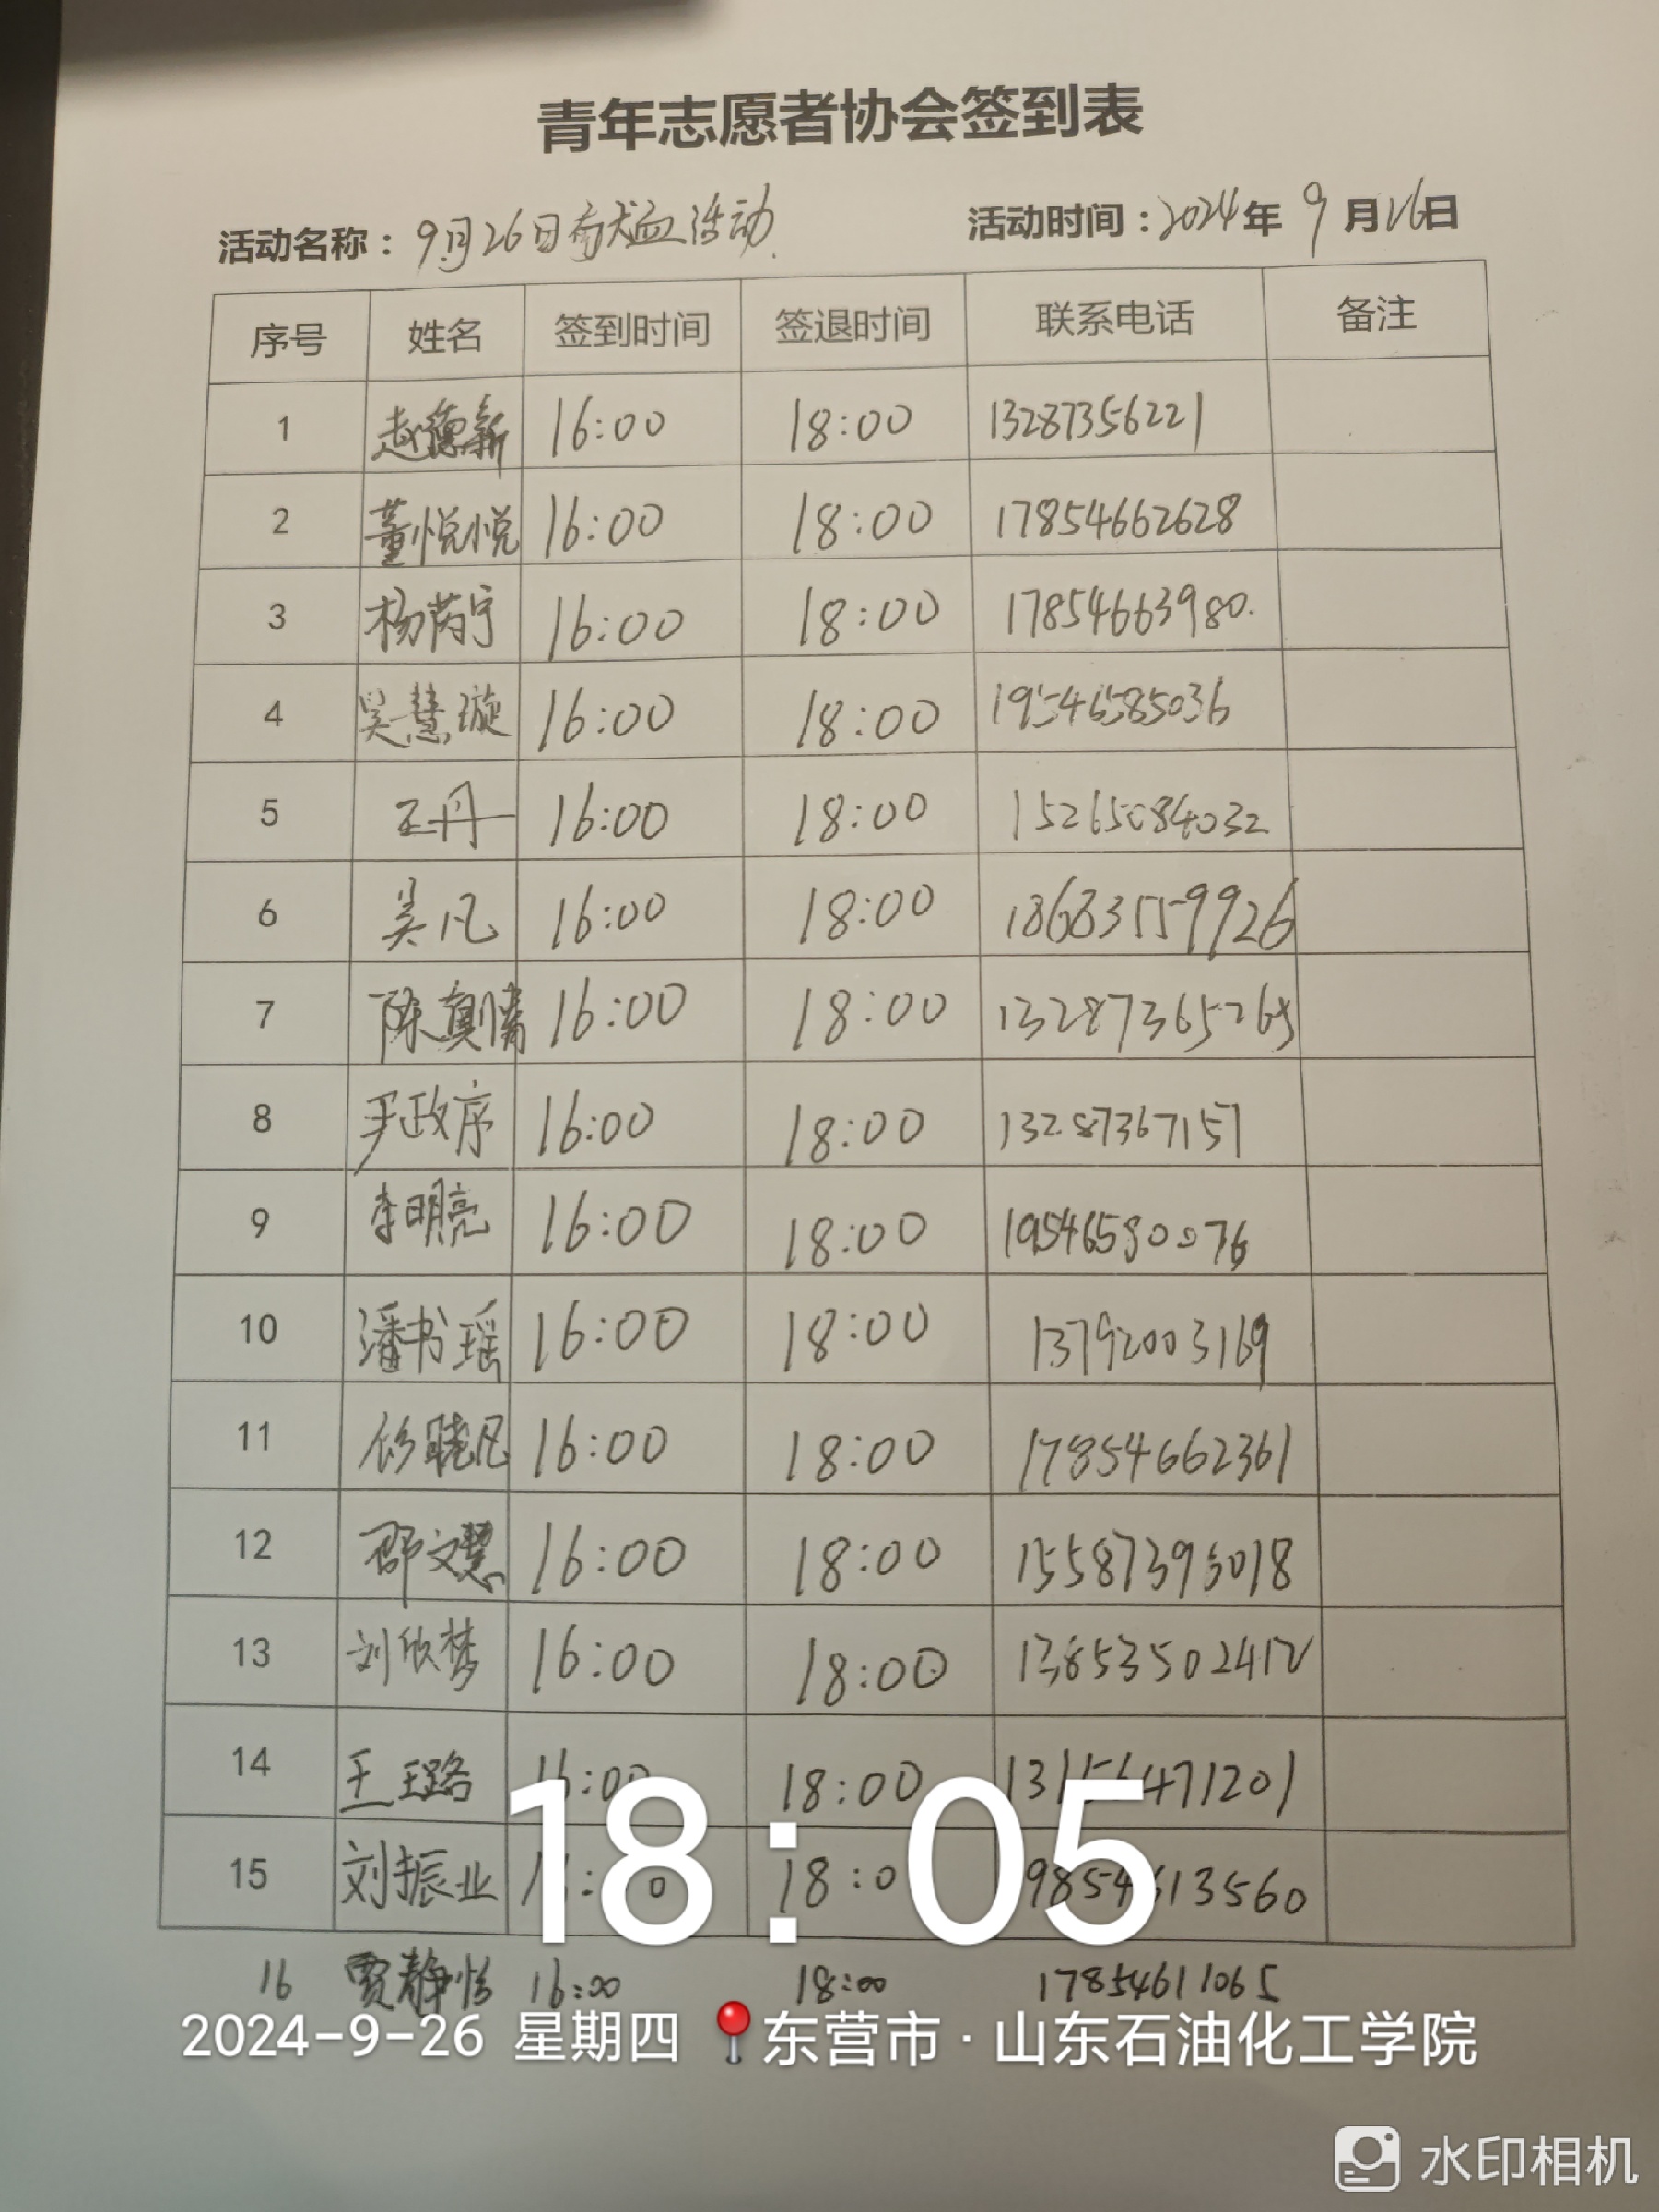 青年志愿者协会签到表
活动名称：9月26日献血活动 活动时间：2024年 9 月26日
序号 姓名 签到时间 签退时间 联系电话 备注
1 赵德新 16:00 18:00 13287356221
2 董悦悦 16:00 18:00 17854662628
3 杨芮宁 16:00 18:00 17854663980.
4 吴慧璇 16:00 18:00 19546585036
5 王丹 16:00 18:00 15265084032
6 吴凡 16:00 18:00 18683559926
7 陈真情 16:00 18:00 13287365265
8 尹政序 16:00 18:00 13287367151
9 李明亮 16:00 18:00 19546580076
10 潘书瑶 16:00 18:00 13792003169
11 徐晓凡 16:00 18:00 17854662361
12 邵文慧 16:00 18:00 15587395018
13 刘欣梦 16:00 18:00 13853502412
14 王璐 16:00 18:00
15 刘振业
18:05
16 贾静怡 16:00 18:00 17854611065
2024-9-26 星期四 东营市·山东石油化工学院
水印相机